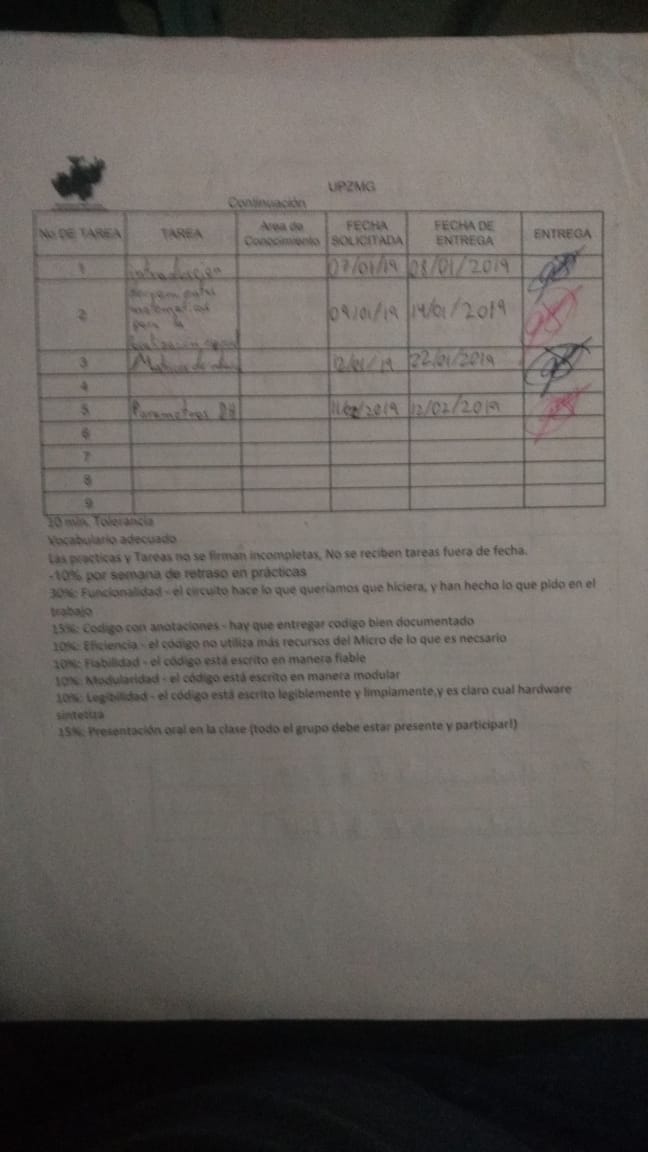 UPZMG
Continuación
No. DE TAREA TAREA Area de Conocimiento FECHA SOLICITADA FECHA DE ENTREGA ENTREGA
1 Introducción 07/01/19 08/01/2019
2 matematicas para la 09/01/19 14/01/2019
3 Matrices de 12/01/19 22/01/2019
4
5 Parametros DH 11/02/2019 12/02/2019
6
7
8
9
10 min. Tolerancia
Vocabulario adecuado
Las practicas y Tareas no se firman incompletas, No se reciben tareas fuera de fecha.
-10% por semana de retraso en prácticas
30%: Funcionalidad - el circuito hace lo que queríamos que hiciera, y han hecho lo que pido en el
trabajo
15%: Codigo con anotaciones - hay que entregar codigo bien documentado
10%: Eficiencia - el código no utiliza más recursos del Micro de lo que es necsario
10%: Fiabilidad - el código está escrito en manera fiable
10%: Modularidad - el código está escrito en manera modular
10%: Legibilidad - el código está escrito legiblemente y limpiamente,y es claro cual hardware
sintetiza
15%: Presentación oral en la clase (todo el grupo debe estar presente y participar!)